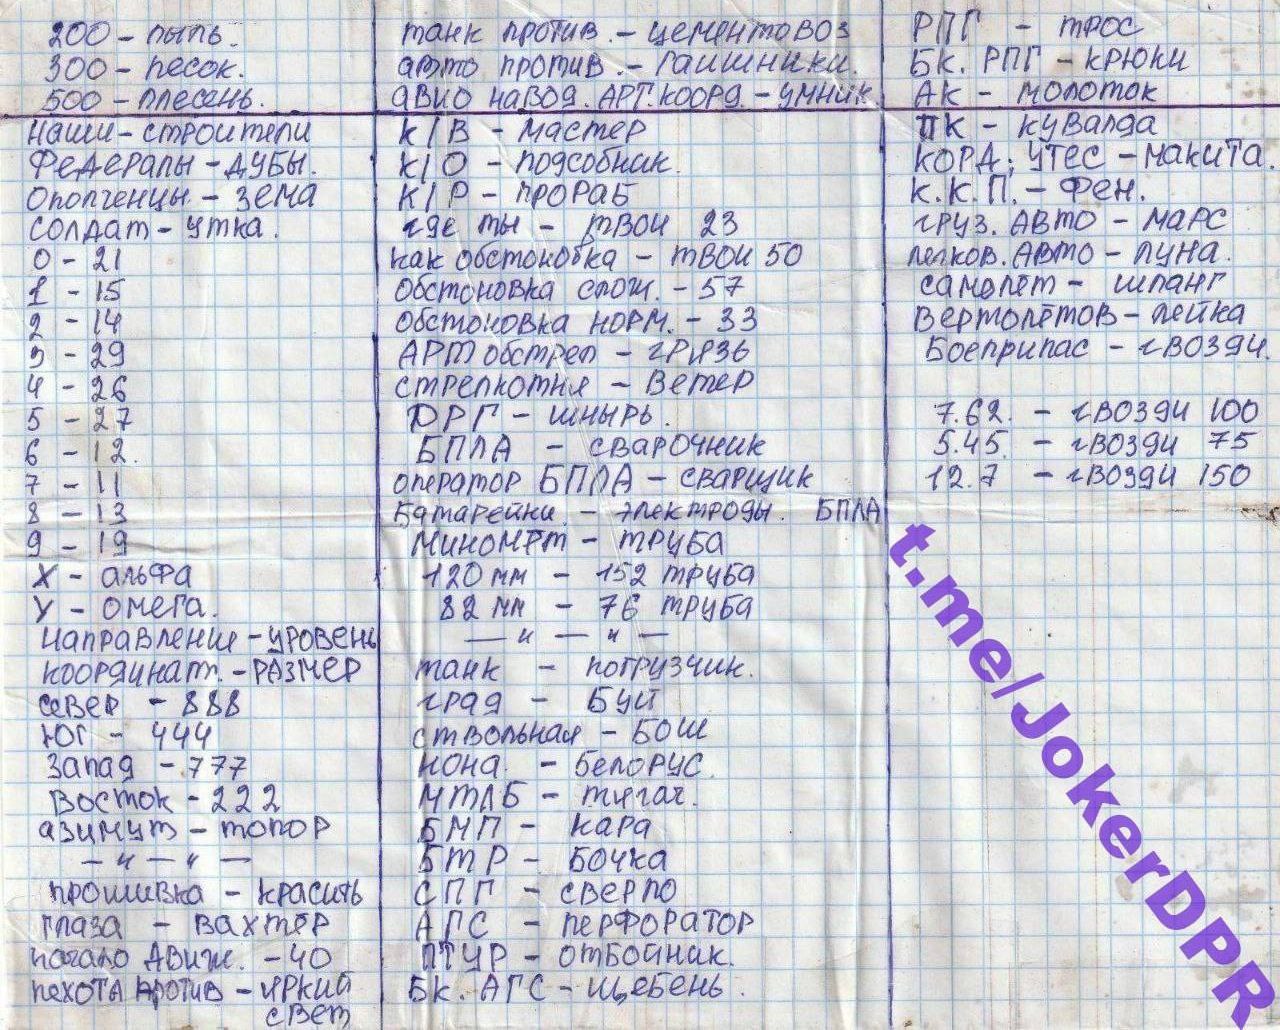 200 - пыль.
300 - песок.
500 - плесень.
наши - строители
Федералы - Дубы.
Ополченцы - зема
солдат - утка.
0 - 21
1 - 15
2 - 14
3 - 29
4 - 26
5 - 27
6 - 12.
7 - 11
8 - 13
9 - 19
X - альфа
У - омега.
направление - уровень
координат. - размер
север - 888
Юг - 444
Запад - 777
Восток - 222
азимут - топор
— и — и —
прошивка - красить
глаза - вахтёр
начало движ. - 40
пехота против - яркий
свет
танк против. - цементовоз
авто против. - гаишники.
авио навод. арт. коорд - умник
К/В - мастер
К/О - подсобник.
К/Р - прораб
где ты - твои 23
как обстоновка - твои 50
Обстоновка слож. - 57
Обстоновка норм. - 33
АРТ обстрел - грязь
стрелкотня - ветер
ДРГ - шнырь.
БПЛА - сварочник
оператор БПЛА - сварщик
Батарейки. - электроды. БПЛА
Миномёт - труба
120 мм - 152 труба
82 мм - 76 труба
— и — и —
танк - погрузчик.
град - Буй
ствольная - БОШ
нона. - Белорус.
МТЛБ - тягач.
БМП - кара
БТР - Бочка
СПГ - сверло
АГС - перфоратор
ПТУР - отбойник.
Бк. АГС - щебень.
РПГ - трос
Бк. РПГ - крюки
АК - молоток
ПК - кувалда
КОРД; УТЕС - макита.
К.К.П. - Фен.
груз. авто - марс
легков. авто - луна.
самолёт - шланг
Вертолётов - лейка
Боеприпас - гвозди.
7.62. - гвозди 100
5.45. - гвозди 75
12.7 - гвозди 150
t.me/JokerDPR